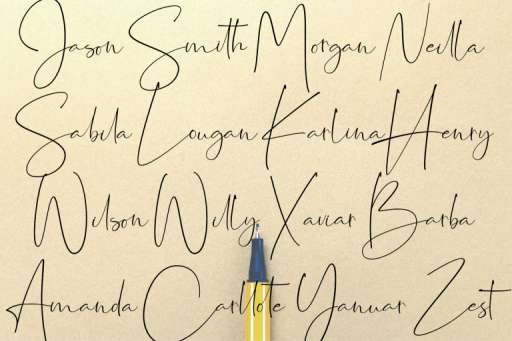 Jason Smith Morgan Neilla
Sabila Lougan Karlina Henry
Wilson Willy Xaviar Barba
Amanda Carllote Yanuar Zest